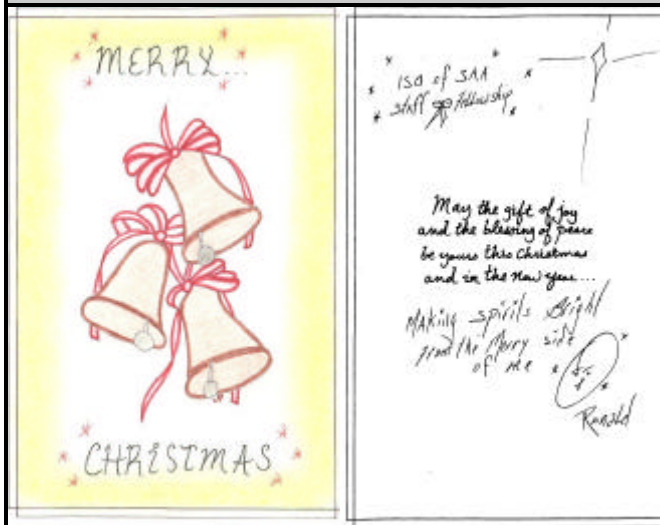 MERRY...
CHRISTMAS
ISO of SAA
Staff & Fellowship
May the gift of joy
and the blessing of peace
be yours this Christmas
and in the New Year...
MAKing spirits Bright
from the Merry side
of me
Ronald